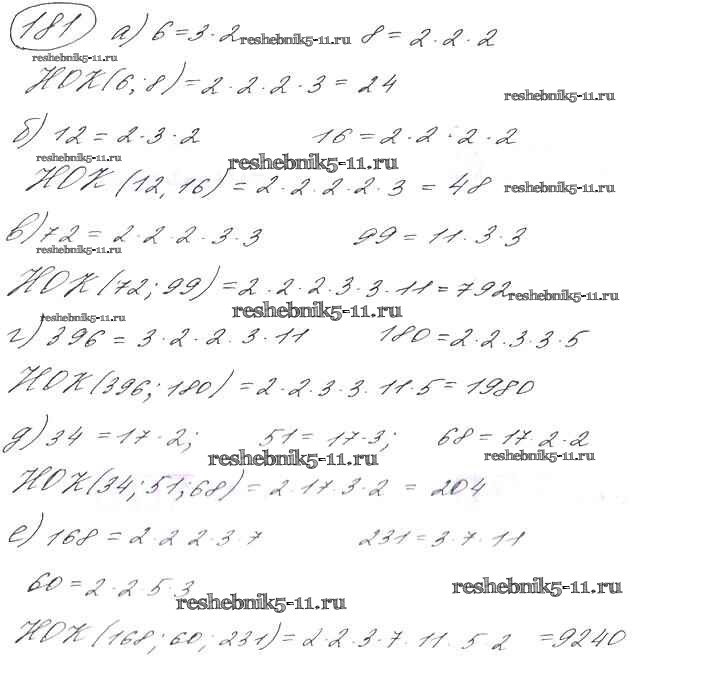 181 а) 6 = 3 · 2 reshebnik5-11.ru 8 = 2 · 2 · 2
reshebnik5-11.ru
НОК(6; 8) = 2 · 2 · 2 · 3 = 24
reshebnik5-11.ru
б) 12 = 2 · 3 · 2 16 = 2 · 2 · 2 · 2
reshebnik5-11.ru reshebnik5-11.ru
НОК (12, 16) = 2 · 2 · 2 · 2 · 3 = 48 reshebnik5-11.ru
в) 72 = 2 · 2 · 2 · 3 · 3 99 = 11 · 3 · 3
reshebnik5-11.ru
НОК (72; 99) = 2 · 2 · 2 · 3 · 3 · 11 = 792 reshebnik5-11.ru
reshebnik5-11.ru reshebnik5-11.ru
г) 396 = 3 · 2 · 2 · 3 · 11 180 = 2 · 2 · 3 · 3 · 5
НОК (396; 180) = 2 · 2 · 3 · 3 · 11 · 5 = 1980
д) 34 = 17 · 2; 51 = 17 · 3; 68 = 17 · 2 · 2
reshebnik5-11.ru reshebnik5-11.ru
НОК (34; 51; 68) = 2 · 17 · 3 · 2 = 204
е) 168 = 2 · 2 2 · 3 · 7 231 = 3 · 7 · 11
60 = 2 · 2 · 5 · 3 reshebnik5-11.ru
reshebnik5-11.ru
НОК (168; 60; 231) = 2 · 2 · 3 · 7 · 11 · 5 2 = 9240